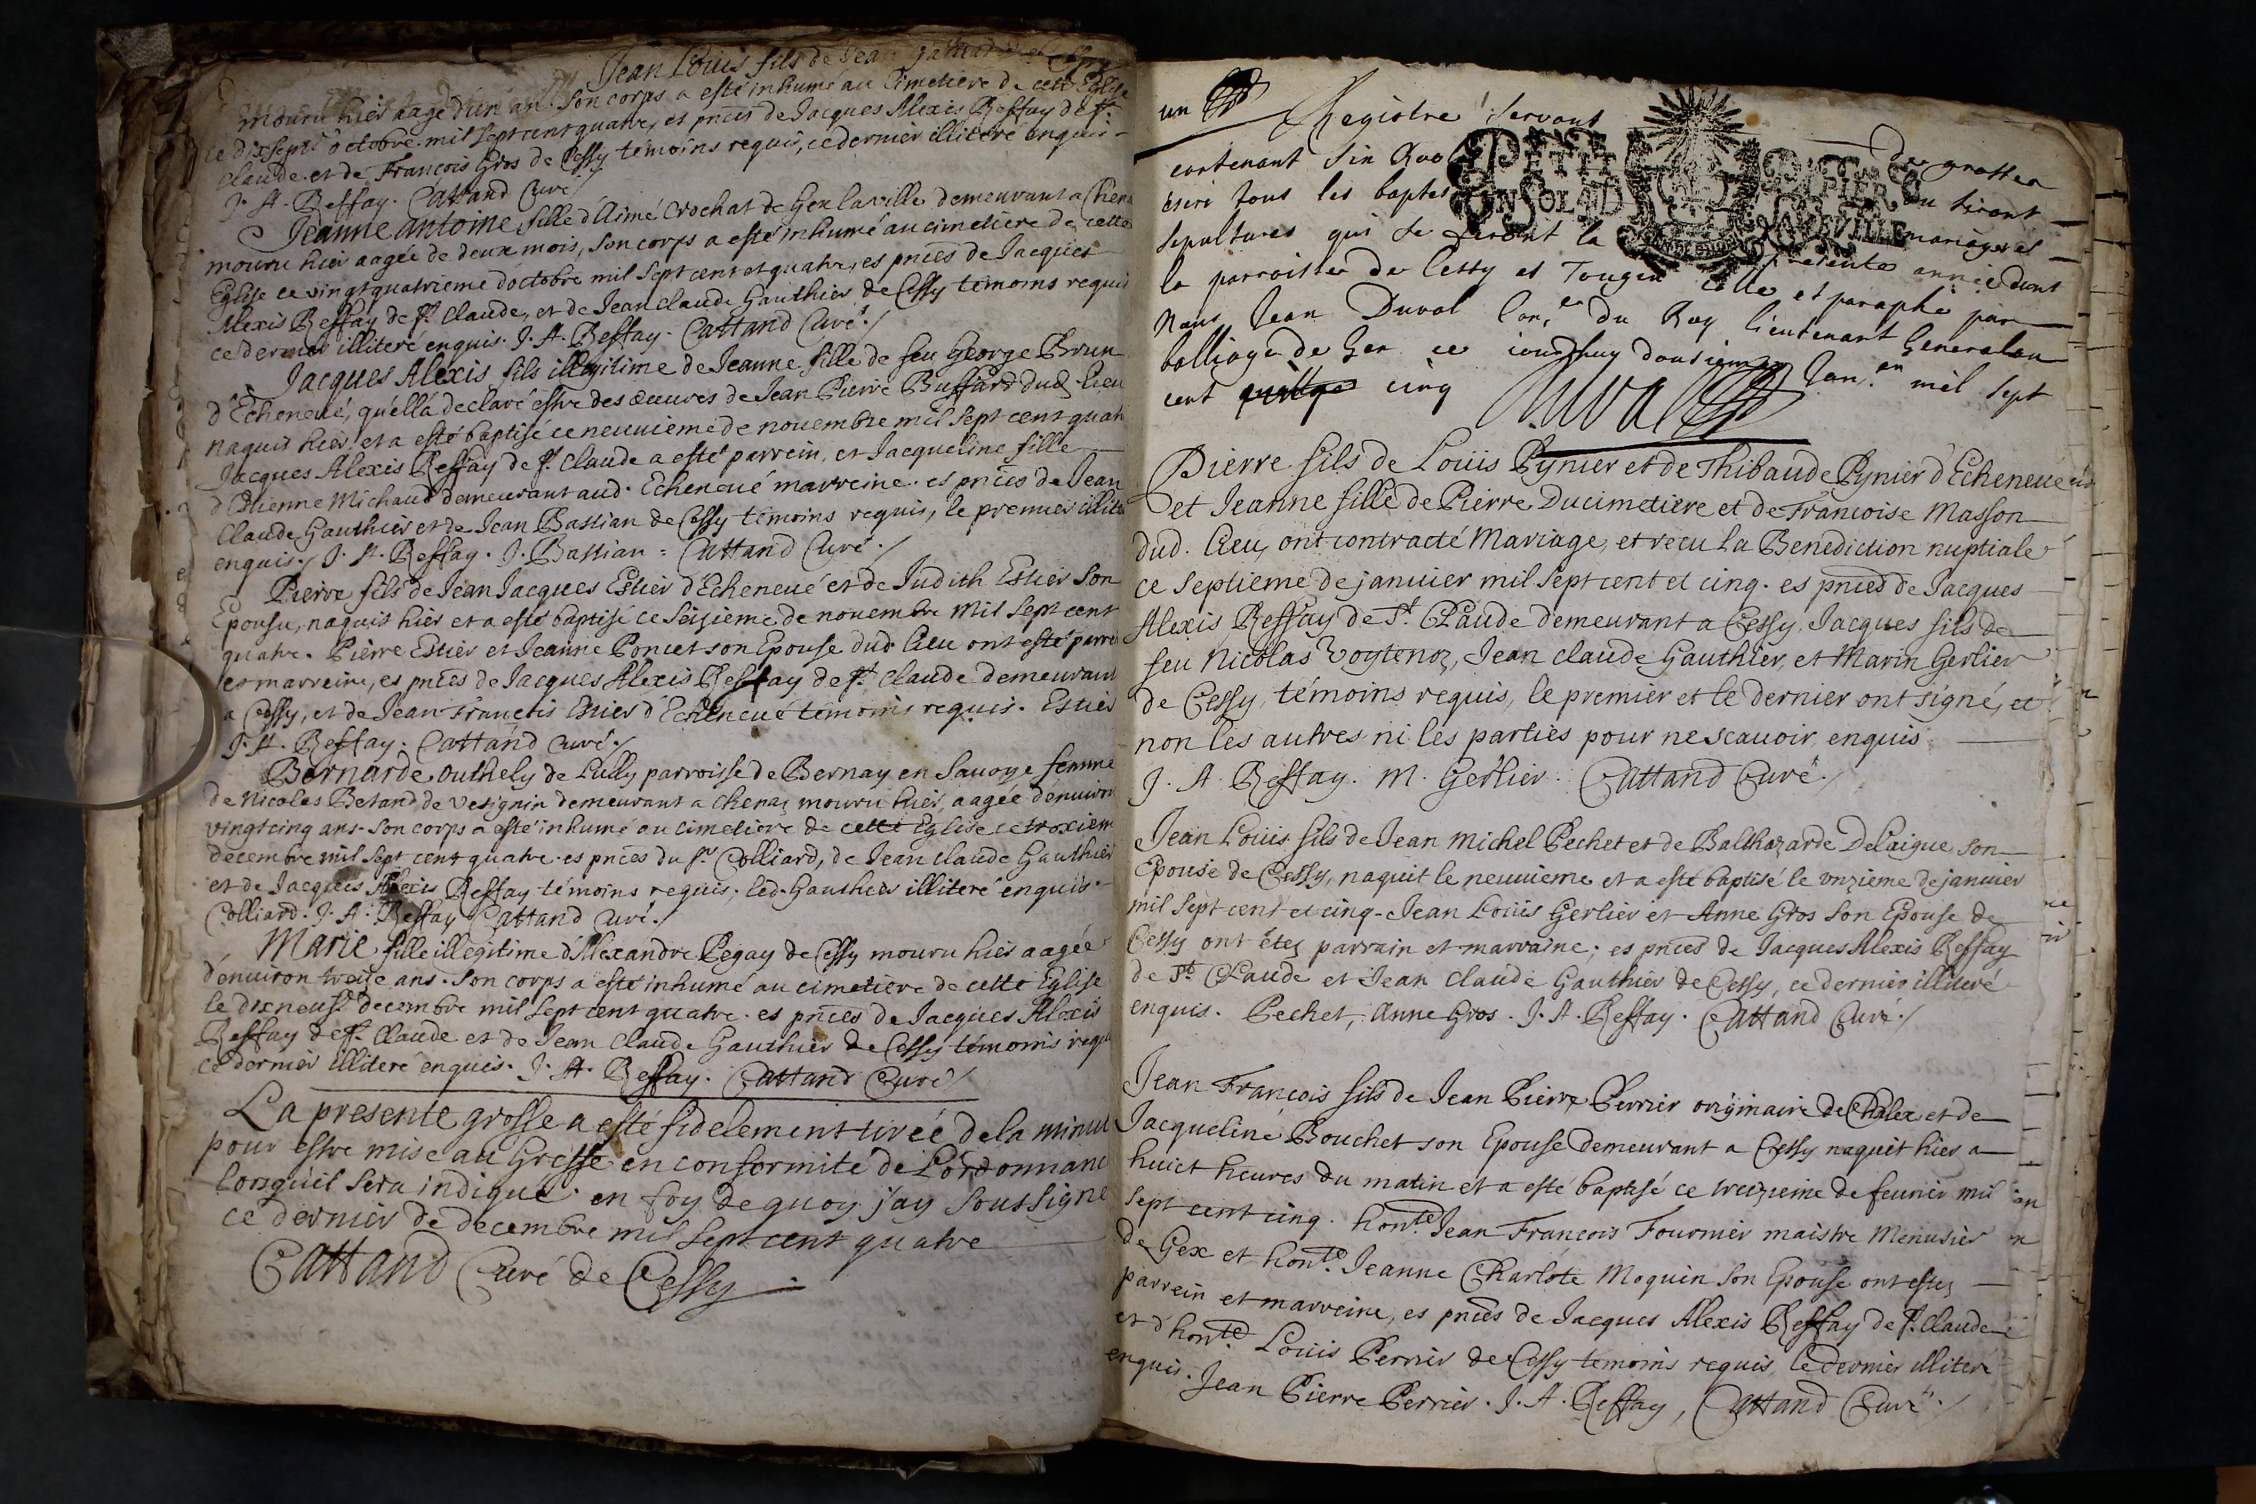 Jean Louis fils de Jean
mouru hier aagé d'un an. Son corps a esté inhumé au Cimetiere de cette Eglise
ce dixsept.e octobre mil sept cent quatre, es pnces de Jacques Alexis Reffay de St.
Claude. et de François Gros de Cessy témoins requis, ce dernier illiteré enquis.
J. A. Reffay. Cattand Curé./
Jeanne Antoine fille d'Aimé Crochat de Gex la ville demeurant a
mouru hier aagée de deux mois, son corps a esté inhumé au cimetiere de cette
Eglise ce vingt quatrieme d'octobre mil sept cent et quatre, es pnces de Jacques
Alexis Reffay de St. Claude, et de Jean Claude Gauthier de Cessy temoins requis
ce dernier illiteré enquis. J. A. Reffay. Cattand Curé./
Jacques Alexis fils illegitime de Jeanne fille de feu George Brun
d'Echeneué, qu'ell'a declaré estre des œuures de Jean Pierre Buffard dud. Lieu
naquit hier, et a esté baptisé ce neuuieme de nouembre mil sept cent quatr
Jacques Alexis Reffay de St. Claude a esté parrein, et Jacqueline fille
d'Estienne Michaud demeurant aud. Echeneué marreine. es pnces de Jean
Claude Gauthier et de Jean Bastian de Cessy témoins requis, le premier illite
enquis./ J. A. Reffay. J. Bastian = Cattand Curé./
Pierre fils de Jean Jacques Estier d'Echeneué et de Judith Estier son
Epouse, naquit hier et a esté baptisé ce seizieme de nouembre mil sept cent
quatre. Pierre Estier et Jeanne Poncet son Epouse dud. Lieu ont esté parre
et marreine, es pnces de Jacques Alexis Reffay de St. Claude demeurant
a Cessy, et de Jean François Estier d'Echeneué témoins requis. Estier
J. A. Reffay. Cattand Curé./
Bernarde outhely de Lully parroisse de Bernay en Sauoye femme
de Nicolas Betand de Vesignin demeurant a Chenaz mouru hier, aagée d'enuiron
vingt cinq ans. Son corps a esté inhumé au cimetiere de cette Eglise ce troxiem
decembre mil sept cent quatre. es pnces du Sr. Colliard, de Jean Claude Gauthier
et de Jacques Alexis Reffay témoins requis. led. Gauthier illiteré enquis.
Colliard. J. A. Reffay Cattand Curé./
Marie fille illegitime d'Alexandre Pegay de Cessy mouru hier aagée
d'enuiron treise ans. Son corps a esté inhumé au cimetiere de cette Eglise
le dixneuf.e decembre mil sept cent quatre. es pnces de Jacques Alexis
Reffay de St. Claude et de Jean Claude Gauthier de Cessy témoins requ
ce dernier illiteré enquis. J. A. Reffay. Cattand Curé/
La presente grosse a esté fidelement tirée de la minut
pour estre mise au Greffe en conformité de L'ordonnanc
lorsqu'il sera indiqué. en foy de quoy j'ay soussigné
ce dernier de decembre mil sept cent quatre
Cattand Curé de Cessy
un
Registre servant de grosses
contenant six du tirant
escri tous les baptes mariages et
sepultures qui se feront la presente année dont
la parroisse de Cessy et Tougin cotté et paraphé par
Nous Jean Duval Con.er du Roy lieutenant General au
balliage de Gex ce jourdhuy douzieme Jan.er mil sept
cent cinq Duval
Pierre fils de Louis Pynier et de Thibaude Pynier d'Echeneue
et Jeanne fille de Pierre Ducimetiere et de Francoise Masson
dud. Lieu, ont contracté Mariage, et recu la Benediction nuptiale
ce septieme de januier mil sept cent et cinq. es pnces de Jacques
Alexis Reffay de St. Claude demeurant a Cessy, Jacques fils de
feu Nicolas Voytenoz, Jean Claude Gauthier, et Marin Gerlier
de Cessy, témoins requis, le premier et le dernier ont signé, et
non les autres ni les parties pour ne scauoir, enquis
J. A. Reffay. M. Gerlier. Cattand Curé./
Jean Louis fils de Jean Michel Pechet et de Balthazarde Delaigue son
Epouse de Cessy, naquit le neuuieme et a esté baptisé le vnzieme de januier
mil sept cent et cinq. Jean Louis Gerlier et Anne Gros son Epouse de
Cessy ont étez parrain et marraine; es pnces de Jacques Alexis Reffay
de St. Claude et Jean Claude Gauthier de Cessy, ce dernier illiteré
enquis. Pechet, Anne Gros. J. A. Reffay. Cattand Curé./
Jean François fils de Jean Pierre Perrier originaire de Chalex et de
Jacqueline Bouchet son Epouse demeurant a Cessy naquit hier a
huict heures du matin et a esté baptisé ce treizieme de feurier mil
sept cent cinq. hon.te Jean François Fournier maistre Menusier
de Gex et hon.te Jeanne Charlote Moquin son Epouse ont estez
parrein et marreine, es pnces de Jacques Alexis Reffay de St. Claude
et d'hon.te Louis Perrier de Cessy temoins requis, le dernier illiteré
enquis. Jean Pierre Perrier. J. A. Reffay, Cattand Curé./